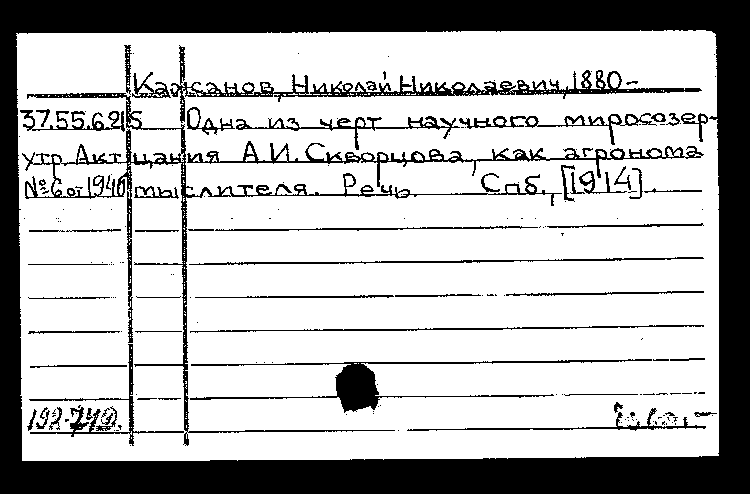 Кажанов, Николай Николаевич, 1880-
37.55.6.21 S Одна из черт научного миросозер-
утр. Акт цания А.И. Скворцова, как агронома
№6 от 1940 мыслителя. Речь. Спб., [1914].